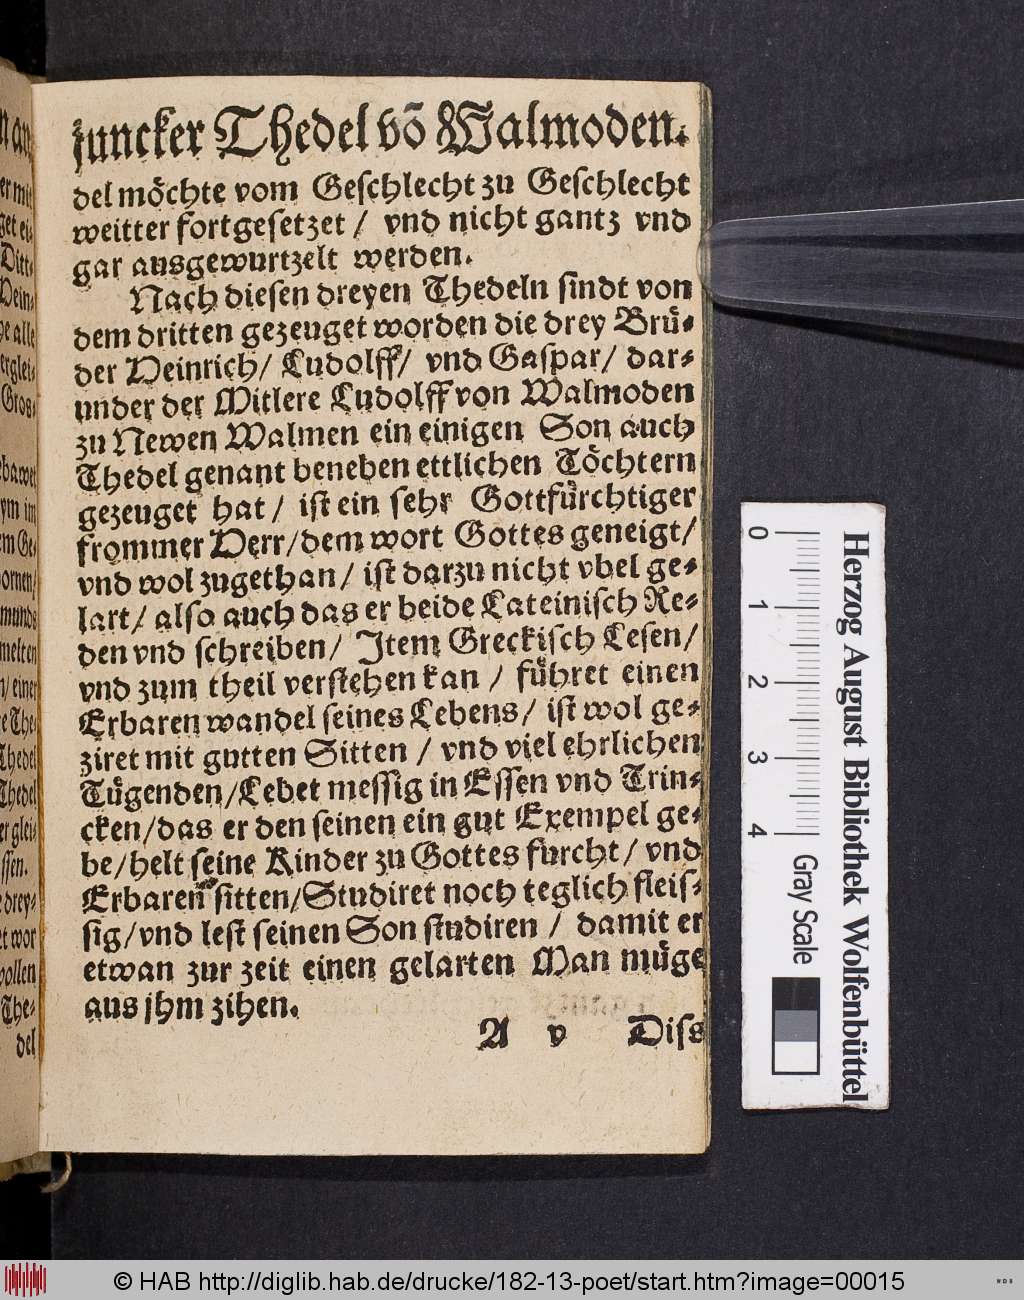 juncker Thedel võ Walmoden.
del möchte vom Geschlecht zu Geschlecht
weitter fortgesetzet / vnd nicht gantz vnd
gar ausgewurtzelt werden.
Nach diesen dreyen Thedeln sindt von
dem dritten gezeuget worden die drey Brü-
der Heinrich/ Ludolff/ vnd Gaspar/ dar-
under der Mitlere Ludolff von Walmoden
zu Newen Walmen ein einigen Son auch
Thedel genant beneben ettlichen Töchtern
gezeuget hat / ist ein sehr Gottfürchtiger
frommer Herr/dem wort Gottes geneigt/
vnd wol zugethan / ist darzu nicht vbel ge-
lart/ also auch das er beide Lateinisch Re-
den vnd schreiben/ Item Greckisch Lesen/
vnd zum theil verstehen kan / führet einen
Erbaren wandel seines Lebens/ ist wol ge-
ziret mit gutten Sitten / vnd viel ehrlichen
Tügenden/Lebet messig in Essen vnd Trin-
cken/das er den seinen ein gut Exempel ge-
be/helt seine Kinder zu Gottes furcht/ vnd
Erbaren sitten/Studiret noch teglich fleis-
sig/vnd lest seinen Son studiren / damit er
etwan zur zeit einen gelarten Man müge
aus jhm zihen.
A v Diss
er mit
get ei-
Ditt-
Hein-
he alle
erglei-
Gros-
bawet
ym im
em Ge-
bornen/
munds
melten
n/ einer
re The-
Thedel
Thedel
er glei-
ssen.
e drey-
et wor
wollen
The-
del
0 1 2 3 4 Gray Scale
Herzog August Bibliothek Wolfenbüttel
© HAB http://diglib.hab.de/drucke/182-13-poet/start.htm?image=00015
WDB